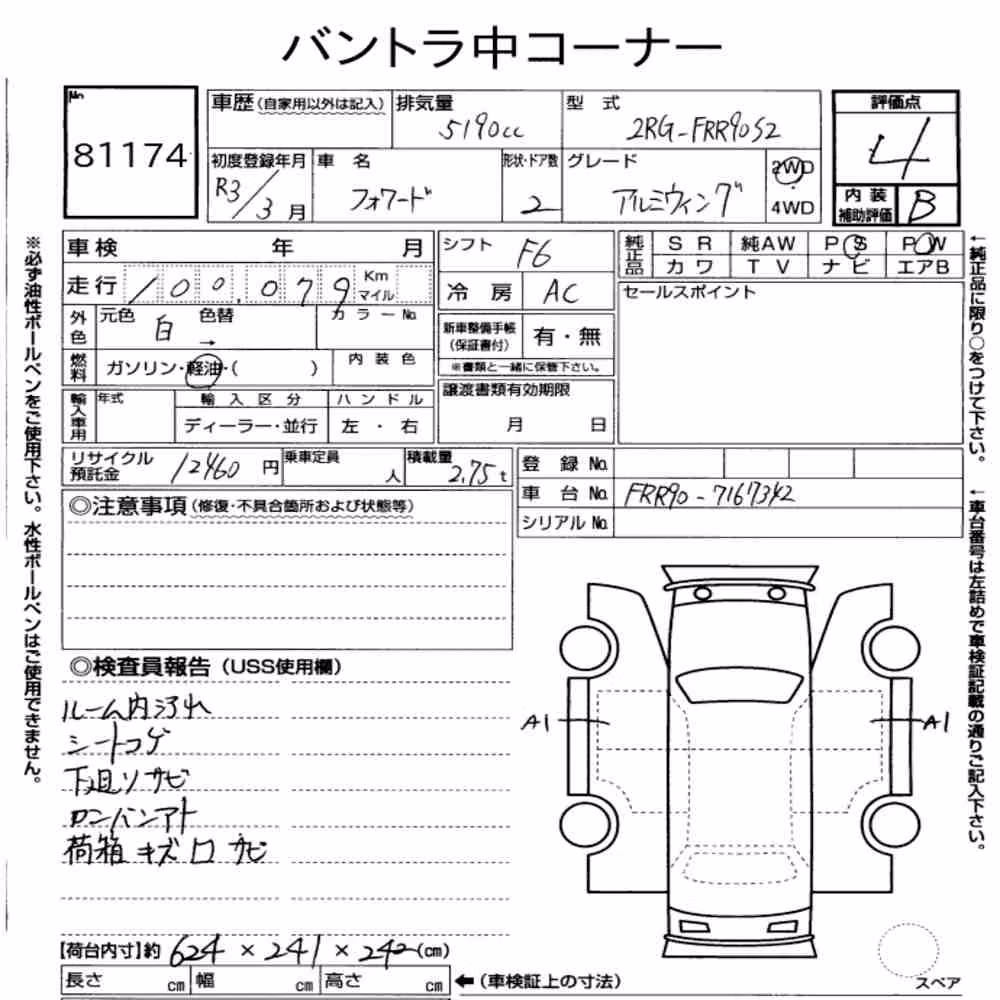 バントラ中コーナー
No
81174
車歴(自家用以外は記入)
排気量
5190cc
型 式
2RG-FRR90S2
評価点
4
初度登録年月
R3/3月
車 名
フォワード
形状・ドア数
2
グレード
アルミウィング
2WD
・
4WD
内 装
補助評価
B
車検 年 月
シフト
F6
純正品
S R
純AW
P S
P W
カ ワ
T V
ナ ビ
エアB
走行
100,079
Km
マイル
冷 房
AC
セールスポイント
外色
元色
白
色替
→
カ ラ ー No.
新車整備手帳
(保証書付)
有・無
※書類と一緒に保管下さい。
燃料
ガソリン・軽油・( )
内 装 色
譲渡書類有効期限
月 日
輸入車用
年式
輸 入 区 分
ハ ン ド ル
ディーラー・並行
左 ・ 右
リサイクル
預託金
12460 円
乗車定員
人
積載量
2.75 t
登 録 No.
車 台 No.
FRR90-7167342
シリアル No.
◎注意事項(修復・不具合箇所および状態等)
◎検査員報告(USS使用欄)
ルーム内ヨゴレ
シートコゲ
下廻りサビ
ロンバンアト
荷箱 キズ ロ サビ
A1
A1
【荷台内寸】約 624 × 241 × 242 (cm)
長さ cm
幅 cm
高さ cm
←(車検証上の寸法)
スペア
※必ず油性ボールペンをご使用下さい。水性ボールペンはご使用できません。
←純正品に限り○をつけて下さい。
←車台番号は左詰めで車検証記載の通りご記入下さい。